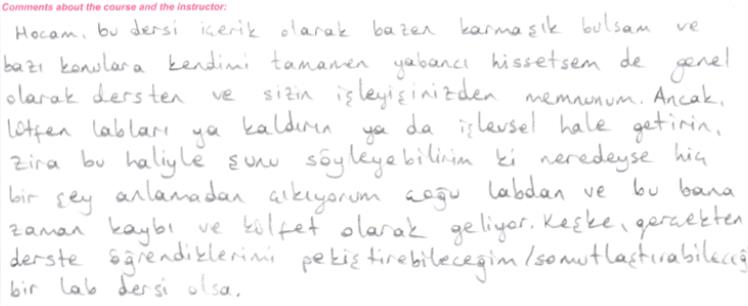 Comments about the course and the instructor:
Hocam, bu dersi içerik olarak bazen karmaşık bulsam ve
bazı konulara kendimi tamamen yabancı hissetsem de genel
olarak dersten ve sizin işleyişinizden memnunum. Ancak,
lütfen labları ya kaldırın ya da işlevsel hale getirin,
zira bu haliyle şunu söyleyebilirim ki neredeyse hiç
bir şey anlamadan çıkıyorum çoğu labdan ve bu bana
zaman kaybı ve külfet olarak geliyor. Keşke, gerçekten
derste öğrendiklerimi pekiştirebileceğim/somutlaştırabileceğ
bir lab dersi olsa.